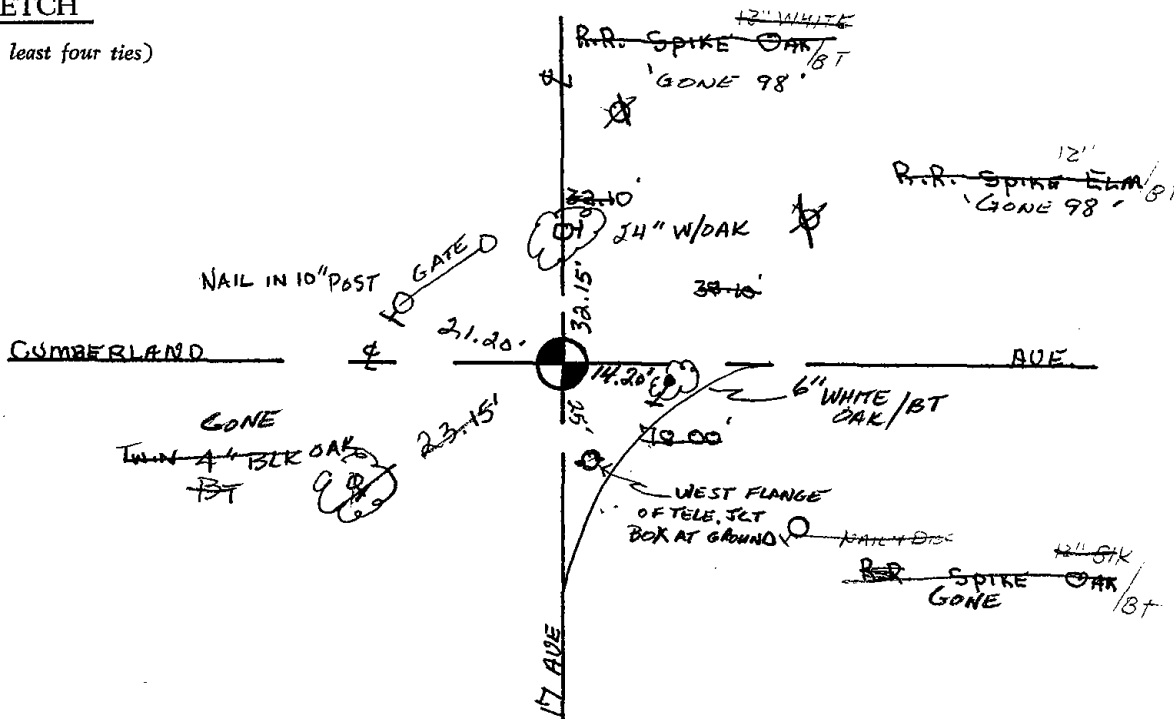 ETCH
least four ties)
12" WHITE
R.R. SPIKE OAK/BT
'GONE 98'
12"
R.R. SPIKE ELM/BT
'GONE 98'
32.10'
24" W/OAK
GATE
NAIL IN 10" POST
32.15'
21.20'
CUMBERLAND
AVE.
14.20'
6" WHITE
OAK/BT
GONE
TWIN 4" BLK OAK
BT
23.15'
WEST FLANGE
OF TELE. JCT
BOX AT GROUND
NAIL & DISC
12" BLK
SPIKE OAK/BT
GONE
17 AVE